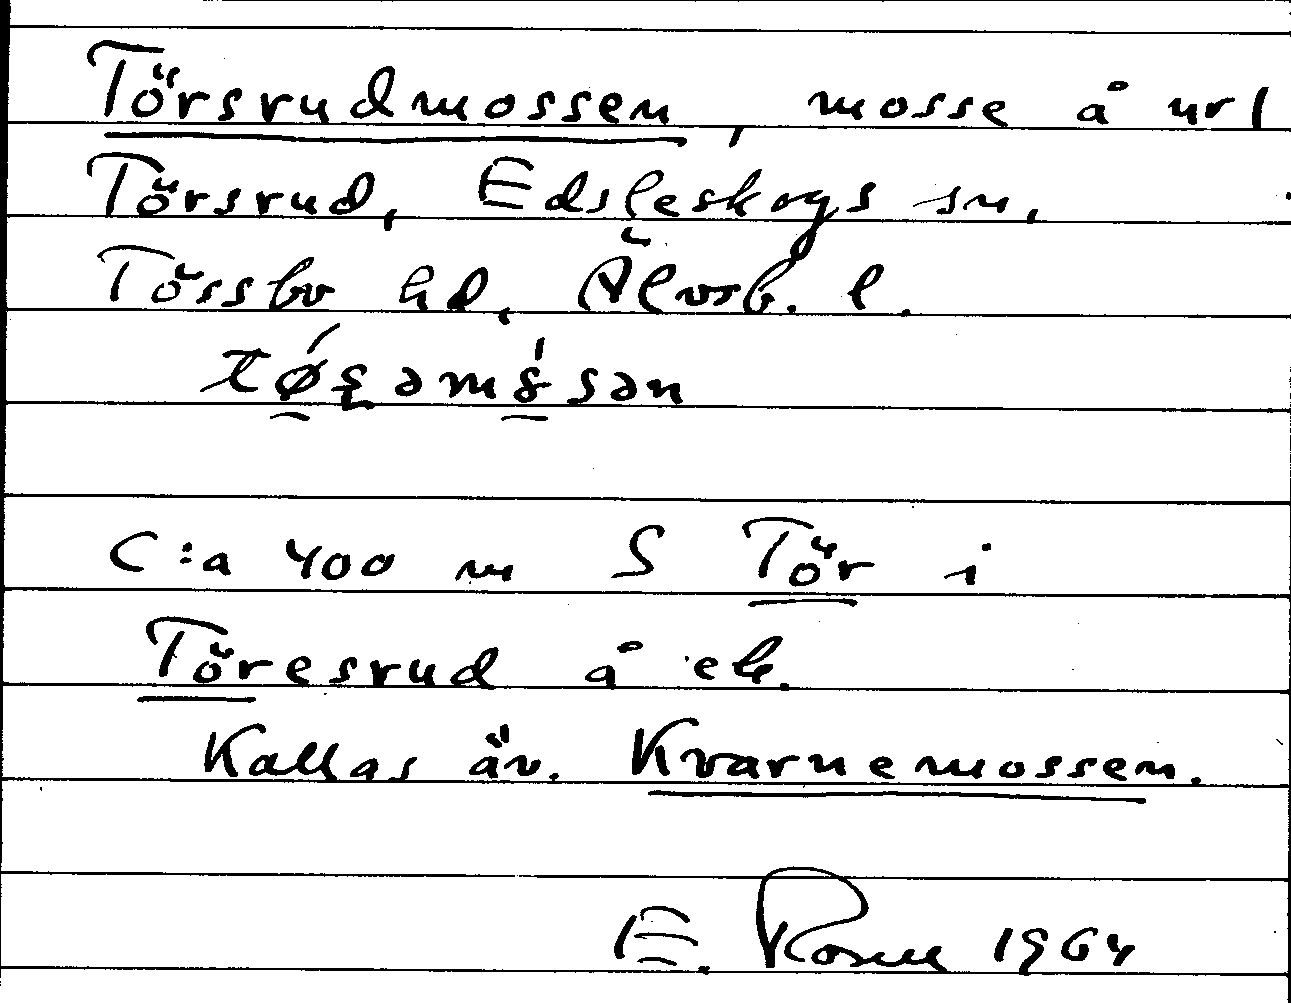 Törsrudmossen, mosse å url
Törsrud, Edsleskogs sn,
Tössbo hd, Älvsb. l.
C:a 400 m S Tör i
Töresrud å ek.
Kallas äv. Kvarnemossen.
E. Rosell 1964